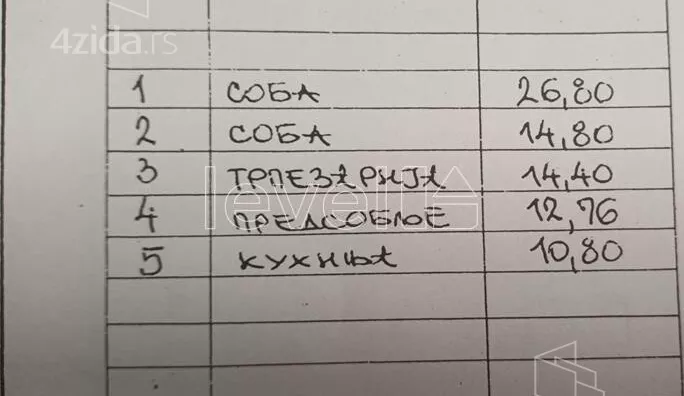 4zida.rs
1 СОБА 26,80
2 СОБА 14,80
3 ТРПЕЗАРИЈА 14,40
level
4 ПРЕДСОБЉЕ 12,76
5 КУХИЊА 10,80